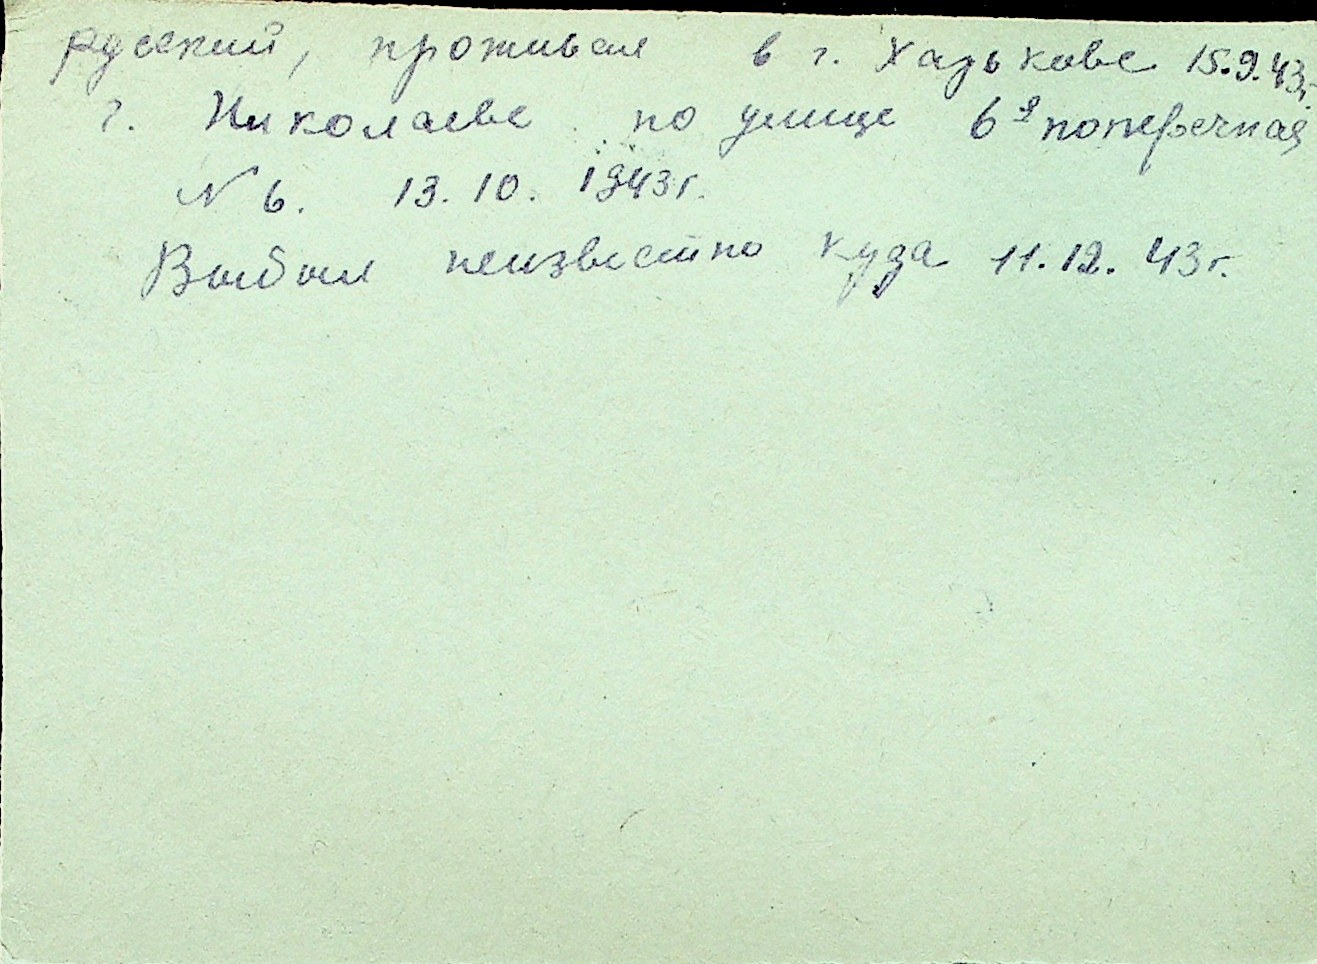 русский, проживал в г. Харькове 15.9.43г.
г. Николаеве по улице 6я поперечная
N 6. 13.10. 1943г.
Выбыл неизвестно куда 11.12.43г.